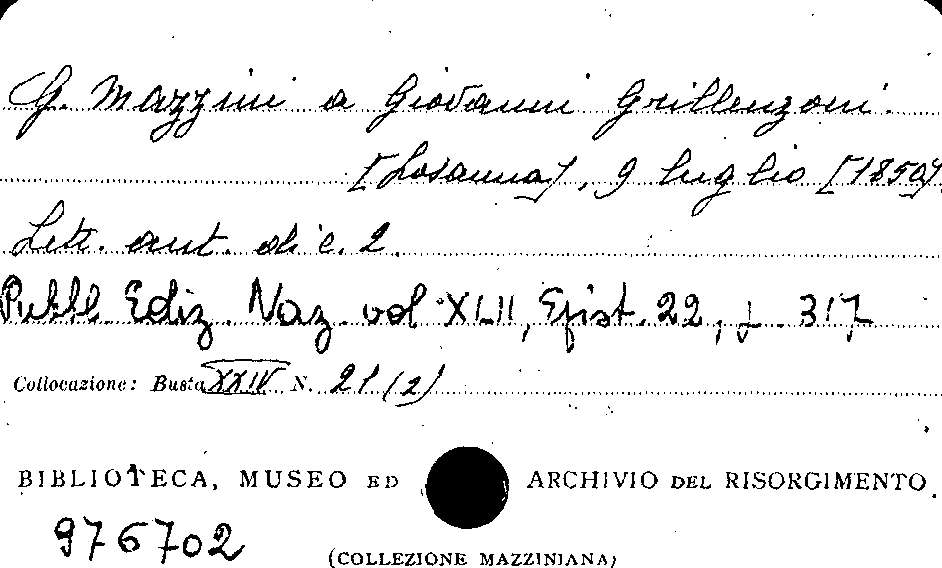 G. Mazzini a Giovanni Grillenzoni.
[Losanna], 9 luglio [1850]
Lett. aut. di c. 2.
Pubbl. Ediz. Naz. vol XLII, Epist. 22, p. 317
Collocazione: Busta XXIV N. 21 (2)
BIBLIOTECA, MUSEO ED ARCHIVIO DEL RISORGIMENTO
976702
(COLLEZIONE MAZZINIANA)